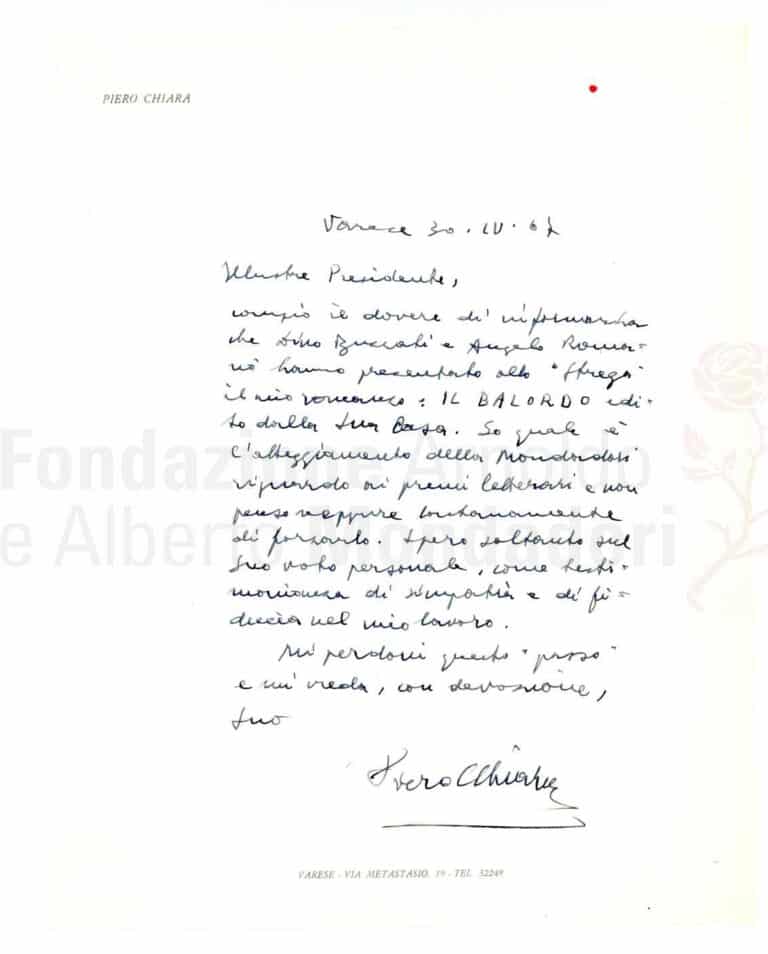 PIERO CHIARA
Varese 30.IV.67
Illustre Presidente,
compio il dovere di informarla
che Dino Buzzati e Angelo Roma-
nò hanno presentato allo "Strega"
il mio romanzo: IL BALORDO edi-
to dalla Sua Casa. So quale è
l'atteggiamento della Mondadori
riguardo ai premi letterari e non
penso neppure lontanamente
di forzarlo. Spero soltanto sul
Suo voto personale, come testi-
monianza di simpatia e di fi-
ducia nel mio lavoro.
Mi perdoni questo "passo"
e mi creda, con devozione,
Suo
Piero Chiara
VARESE - VIA METASTASIO, 19 - TEL. 32249
Fondazione Arnoldo
e Alberto Mondadori